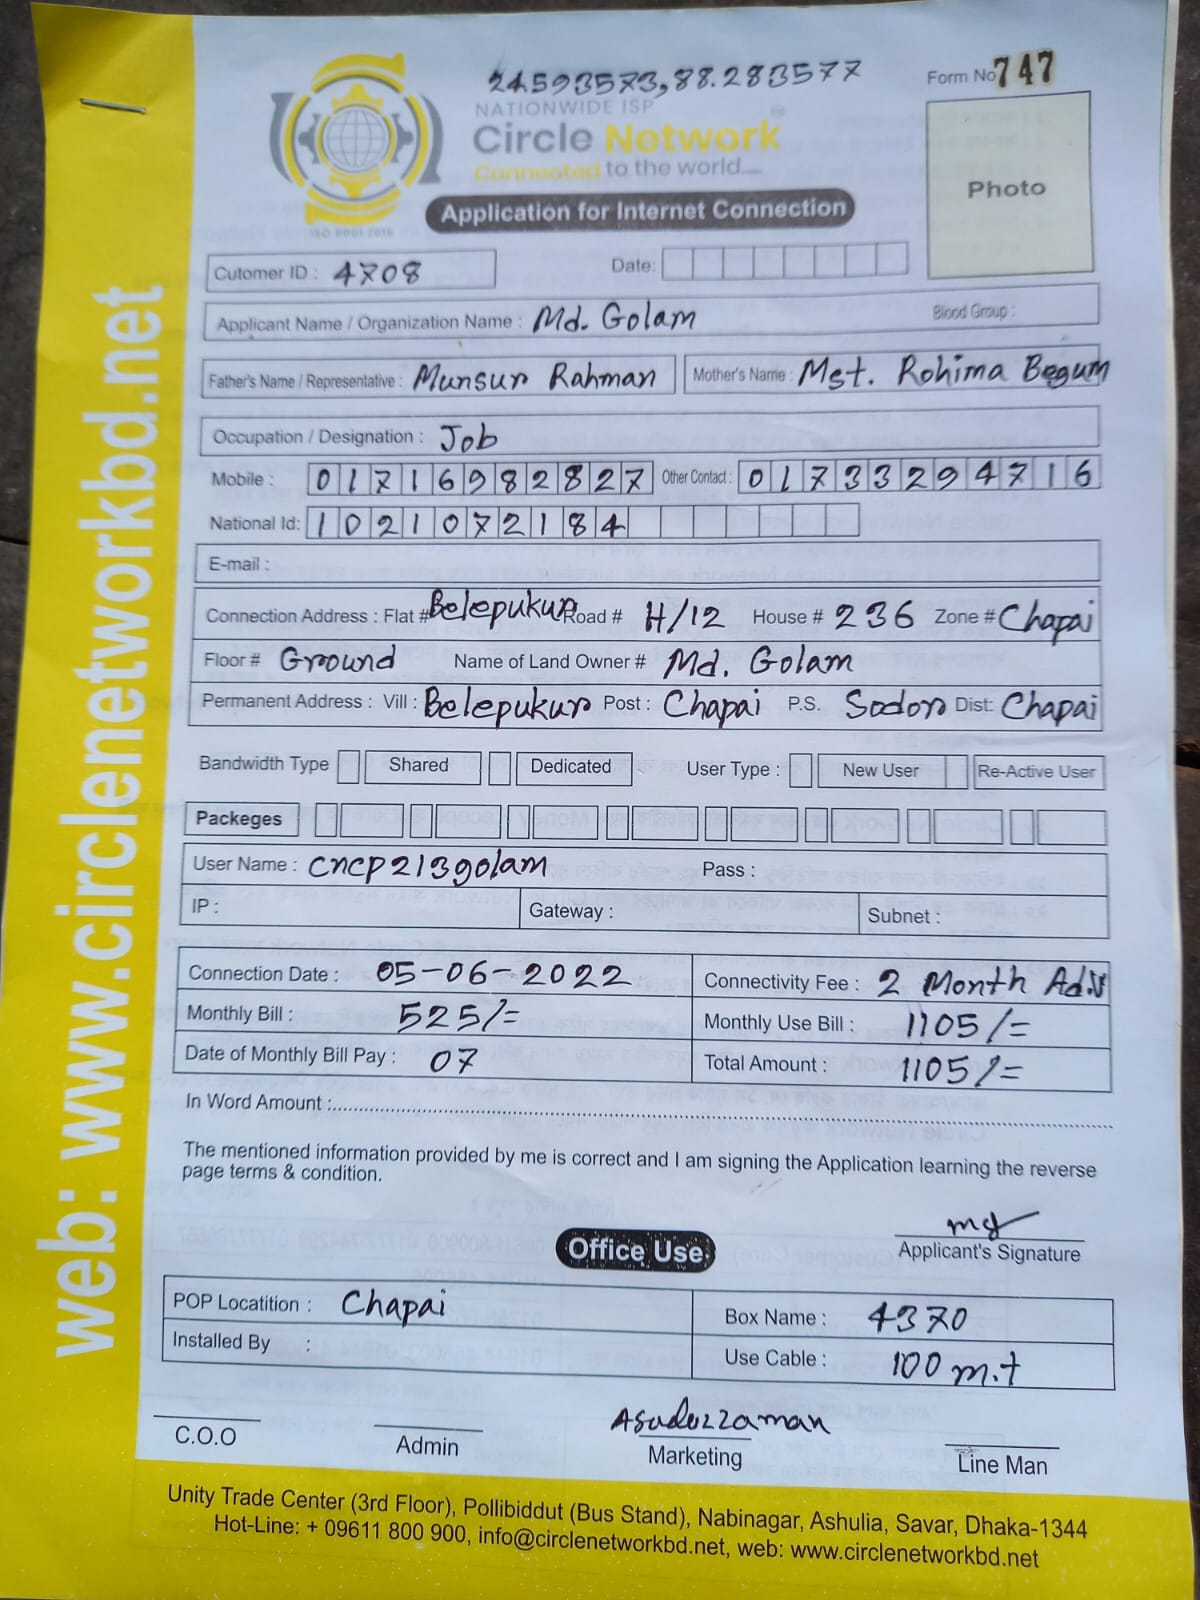 24.593573,88.283577
Form No 747
NATIONWIDE ISP
Circle Network
Connected to the world.....
ISO 9001:2015
Photo
Application for Internet Connection
Cutomer ID : 4708 Date:
Applicant Name / Organization Name : Md. Golam Blood Group :
Father's Name / Representative : Munsur Rahman Mother's Name : Mst. Rohima Begum
Occupation / Designation : Job
Mobile : 01716982827 Other Contact : 01733294716
National Id: 1021072184
E-mail :
Connection Address : Flat # Belepukur Road # H/12 House # 236 Zone # Chapai
Floor # Ground Name of Land Owner # Md. Golam
Permanent Address : Vill : Belepukur Post : Chapai P.S. Sodor Dist: Chapai
Bandwidth Type Shared Dedicated User Type : New User Re-Active User
Packeges
User Name : cncp213golam Pass :
IP : Gateway : Subnet :
Connection Date : 05-06-2022 Connectivity Fee : 2 Month Ad.V
Monthly Bill : 525/= Monthly Use Bill : 1105/=
Date of Monthly Bill Pay : 07 Total Amount : 1105/=
In Word Amount :
The mentioned information provided by me is correct and I am signing the Application learning the reverse
page terms & condition.
Applicant's Signature
Office Use
POP Locatition : Chapai Box Name : 4370
Installed By : Use Cable : 100 m.t
Asaduzzaman
C.O.O Admin Marketing Line Man
Unity Trade Center (3rd Floor), Pollibiddut (Bus Stand), Nabinagar, Ashulia, Savar, Dhaka-1344
Hot-Line: + 09611 800 900, info@circlenetworkbd.net, web: www.circlenetworkbd.net
web: www.circlenetworkbd.net